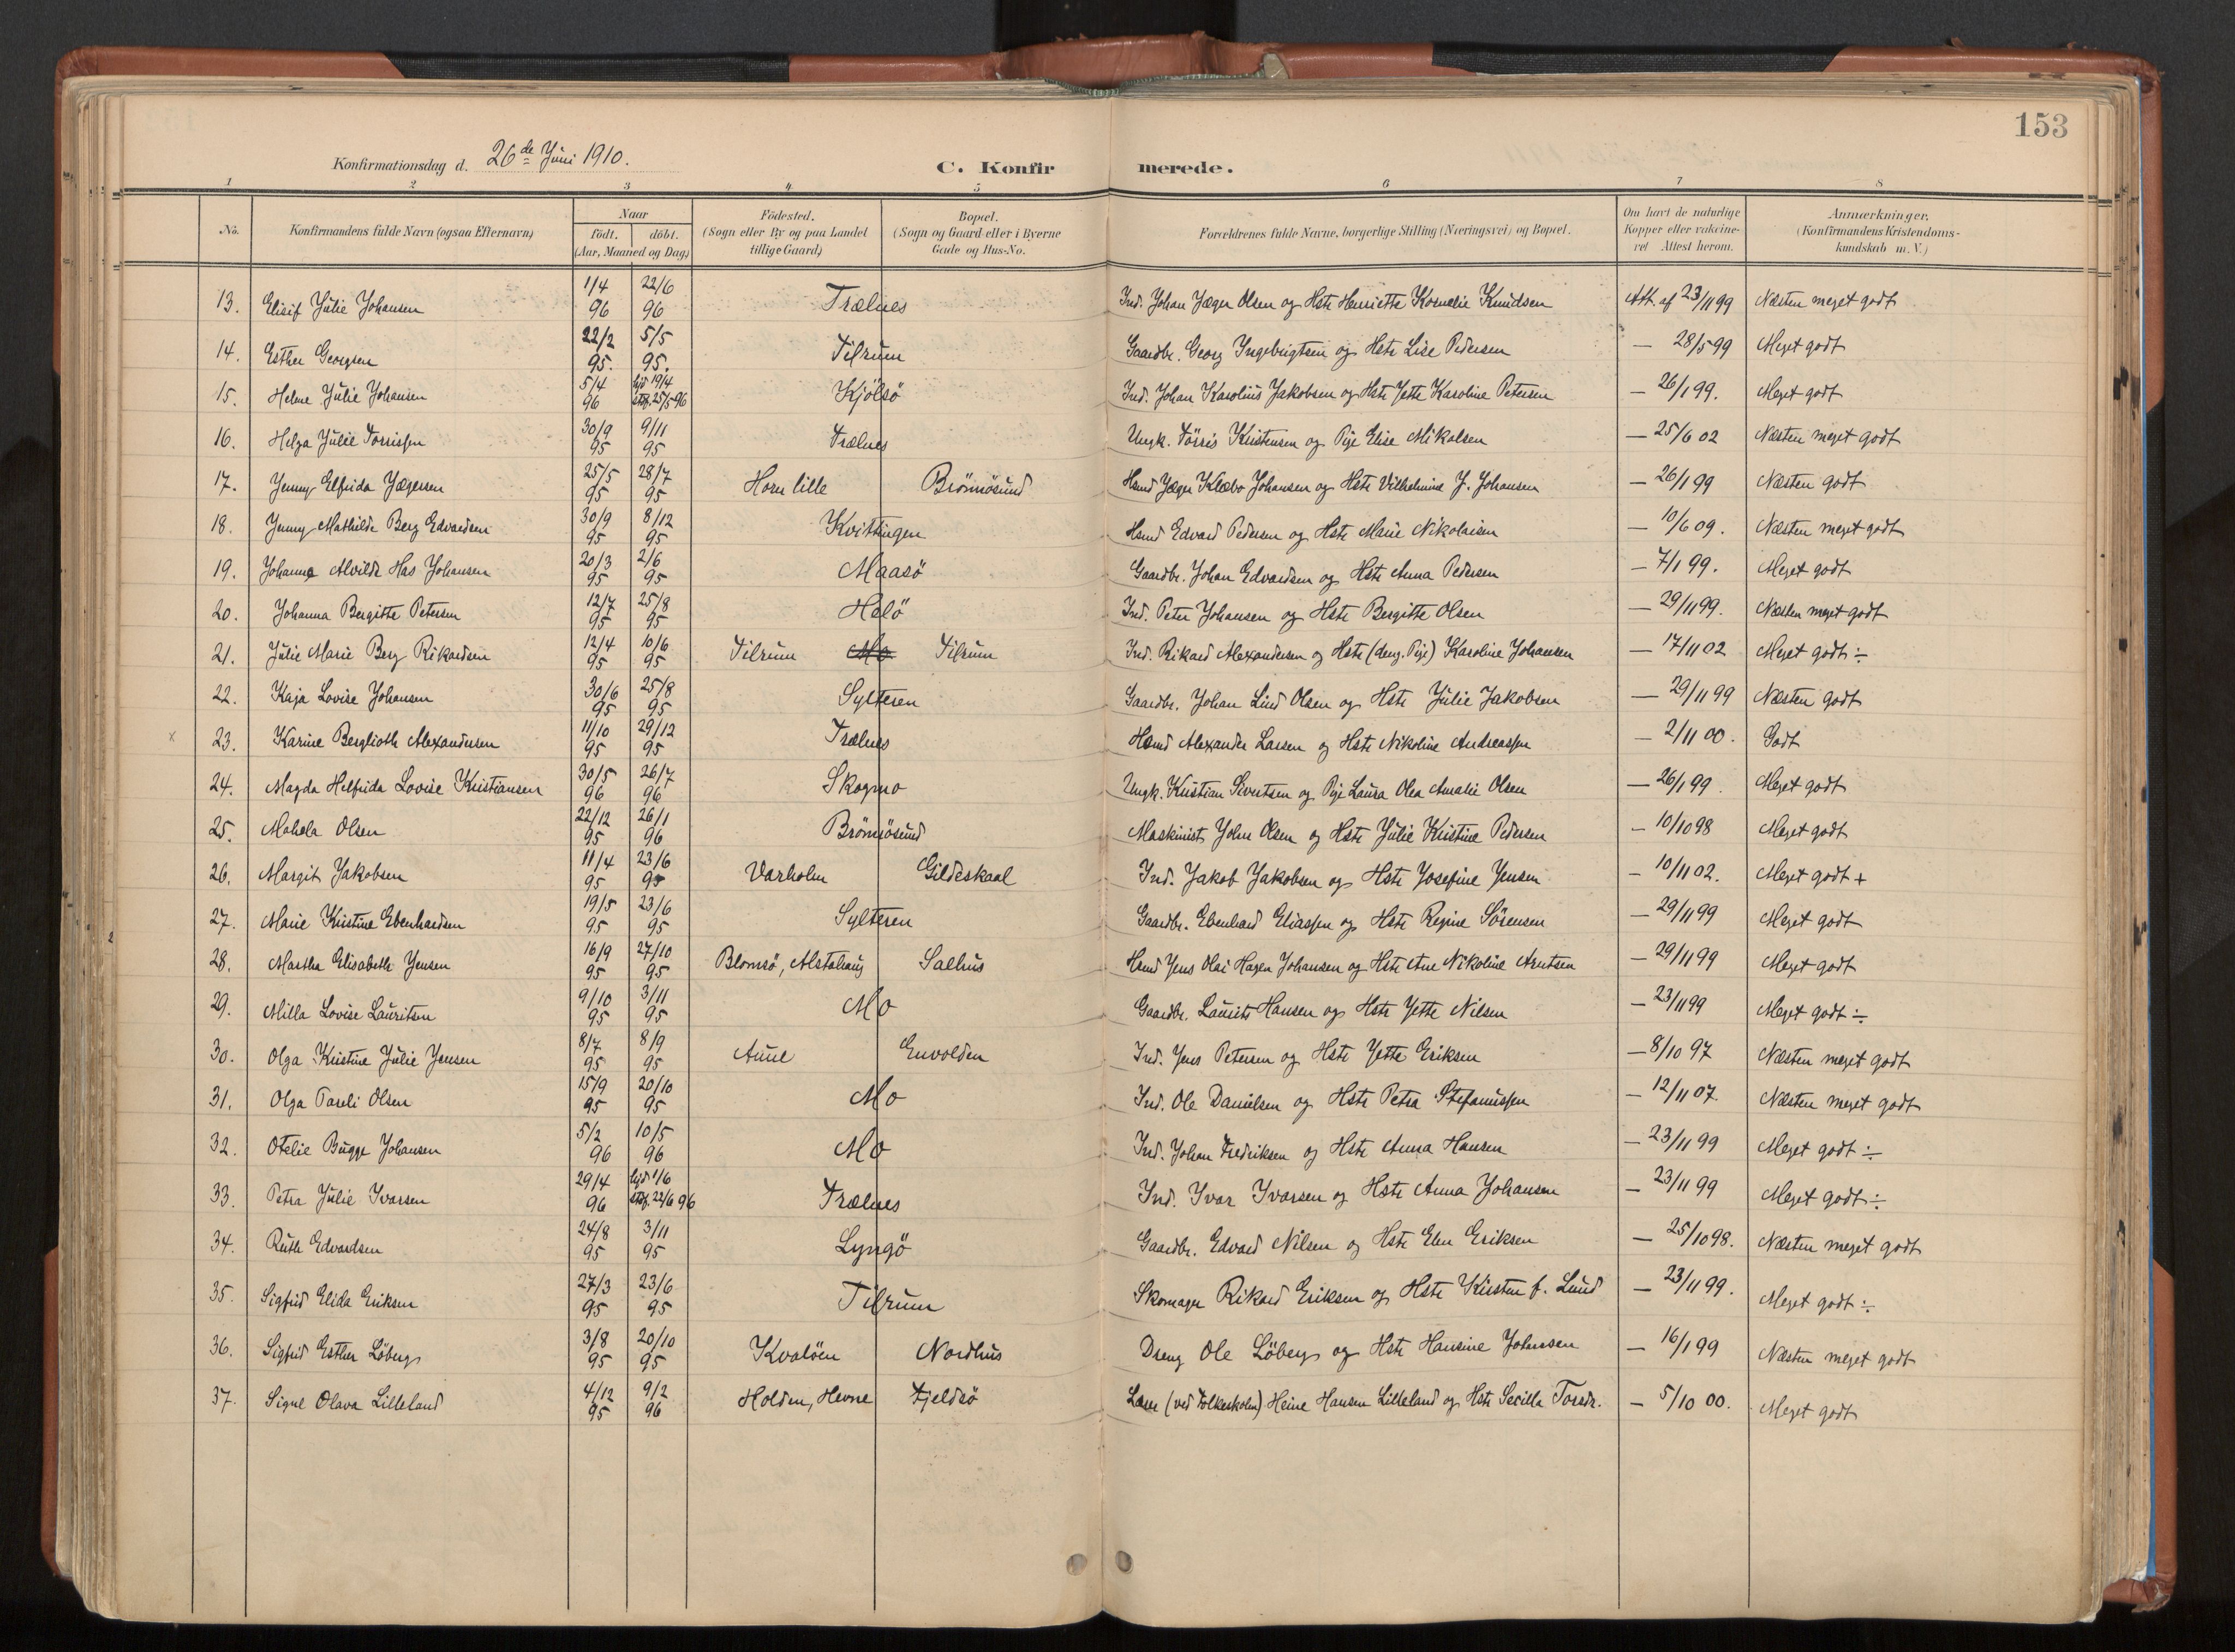 153
Konfirmationsdag d. 26de Juni 1910.
C. Konfirmerede.
1 2 3 4 5 6 7 8
No. Konfirmandens fulde Navn (ogsaa Efternavn) Naar födt. döbt. (Aar, Maaned og Dag) Födested. (Sogn eller By og paa Landet tillige Gaard) Bopæl. (Sogn og Gaard eller i Byerne Gade og Hus-No. Forældrenes fulde Navne, borgerlige Stilling (Næringsvei) og Bopæl. Om havt de naturlige Kopper eller vakcineret Attest herom. Anmærkninger. (Konfirmandens Kristendomskundskab m. V.)
13. Elisif Julie Johansen 1/4 96 22/6 96 Trælnes Ind. Johan Jæger Olsen og Hstr Henriette Kornelie Knudsen Att. af 23/11 99 Næsten meget godt
14. Esther Georgsen 22/2 95. 5/5 95. Tilrum Gaardbr. Georg Ingebrigtsen og Hstr Lise Pedersen — 28/5 99 Meget godt
15. Helene Julie Johansen 5/4 96 hjd 19/4 stf. 25/5 96 Kjölsö Ind. Johan Karolius Jakobsen og Hstr Jette Karoline Petersen — 26/1 99. Meget godt
16. Helga Julie Torrissen 30/9 95 9/11 95 Trælnes Ungk. Törris Kristensen og Pige Elise Mikalsen — 25/6 02 Næsten meget godt
17. Jenny Elfrida Jægersen 25/5 95 28/7 95 Horn lille Brönnösund Hsmd Jæger Klæbo Johansen og Hstr Vilhelmine J. Johansen — 26/1 99 Næsten godt
18. Jenny Mathilde Berg Edvardsen 30/9 95 8/12 95 Kvittingen Hsmd Edvard Pedersen og Hstr Marie Nikolaisen — 10/6 09. Næsten meget godt
19. Johanna Alvilde Has Johansen 20/3 95 2/6 95 Maasö Gaardbr. Johan Edvardsen og Hstr Anna Pedersen — 7/1 99. Meget godt
20. Johanna Bergitte Petersen 12/7 95 25/8 95 Helö Ind. Peter Johansen og Hstr Bergitte Olsen — 29/11 99. Næsten meget godt
21. Julie Marie Berg Rikardsen 12/4 95 10/6 95 Tilrum Mo Tilrum Ind. Rikard Alexandersen og Hstr (deng. Pige) Karoline Johansen — 17/11 02 Meget godt ÷
22. Kaja Lovise Johansen 30/6 95 25/8 95 Sylteren Gaardbr. Johan Lind Olsen og Hstr Julie Jakobsen — 29/11 99 Næsten godt
x 23. Karine Berglioth Alexandersen 11/10 95 29/12 95 Trælnes Hsmd Alexander Larsen og Hstr Nikoline Andreassen — 2/11 00. Godt
24. Magda Helfrida Lovise Kristiansen 30/5 96 26/7 96 Skogmo Ungk. Kristian Sivertsen og Pige Laura Olea Amalie Olsen — 26/1 99. Meget godt
25. Mahela Olsen 22/12 95 26/1 96 Brönnösund Maskinist John Olsen og Hstr Julie Kristine Pedersen — 10/10 98 Meget godt
26. Margit Jakobsen 11/4 95 23/6 95 Varholm Gildeskaal Ind. Jakob Jakobsen og Hstr Josefine Jensen — 10/11 02. Meget godt +
27. Marie Kristine Ebenhardsen 19/5 95 23/6 95 Sylteren Gaardbr. Ebenhard Eliassen og Hstr Regine Sörensen — 29/11 99 Meget godt
28. Martha Elisabeth Jensen 16/9 95 27/10 95 Blomsö, Alstahaug Salhus Hsmd Jens Olai Hagen Johansen og Hstr Ane Nikoline Arntsen — 29/11 99 Meget godt
29. Milla Lovise Lauritsen 9/10 95 3/11 95 Mo Gaardbr. Laurits Hansen og Hstr Jette Nilsen — 23/11 99 Meget godt ÷
30. Olga Kristine Julie Jensen 8/7 95 8/9 95 Aune Envolden Ind. Jens Petersen og Hstr Jette Eriksen — 8/10 97 Næsten meget godt
31. Olga Pareli Olsen 15/9 95 20/10 95 Mo Ind. Ole Danielsen og Hstr Petra Stefanussen — 12/11 07. Næsten meget godt
32. Otelie Bugge Johansen 5/2 96 10/5 96 Mo Ind. Johan Fredriksen og Hstr Anna Hansen — 23/11 99 Meget godt ÷
33. Petra Julie Ivarsen 29/4 96 hjd 1/6 stf. 22/6 96 Trælnes Ind. Ivar Ivarsen og Hstr Anna Johansen — 23/11 99 Meget godt ÷
34. Ruth Edvardsen 24/8 95 3/11 95 Lyngö Gaardbr. Edvard Nilsen og Hstr Elen Eriksen — 25/10 98. Næsten meget godt
35. Sigfrid Elida Eriksen 27/3 95 23/6 95 Tilrum Skomager Rikard Eriksen og Hstr Kirsten f. Lund — 23/11 99. Meget godt ÷
36. Sigfrid Esther Löberg 3/8 95 20/10 95 Kvalöen Nordhus Dreng Ole Löberg og Hstr Hansine Johansen — 16/1 99 Næsten meget godt
37. Signe Olava Lilleland 4/12 95 9/2 96 Holden, Hevne Tjeldsö Lærer (ved Folkeskolen) Heine Hansen Lilleland og Hstr Secilla Torsdr. — 5/10 00. Meget godt